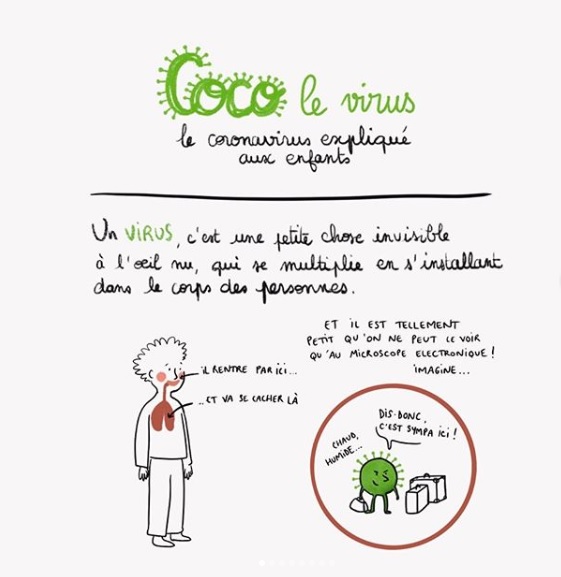 Coco le virus
le coronavirus expliqué
aux enfants
Un VIRUS, c'est une petite chose invisible
à l'oeil nu, qui se multiplie en s'installant
dans le corps des personnes.
ET IL EST TELLEMENT
PETIT QU'ON NE PEUT LE VOIR
QU'AU MICROSCOPE ELECTRONIQUE !
IMAGINE...
IL RENTRE PAR ICI...
...ET VA SE CACHER LÀ
DIS-DONC,
C'EST SYMPA ICI !
CHAUD,
HUMIDE...